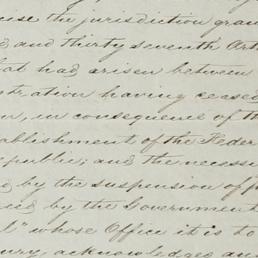 cise the jurisdiction gran
and thirty seventh Art
hat had arisen between
stration having ceased
in consequence of th
ablishment of the Feder
epublic; and the necessi
by the suspension of
ced by the Government
l" whose Office it is to
ury, acknowledges and